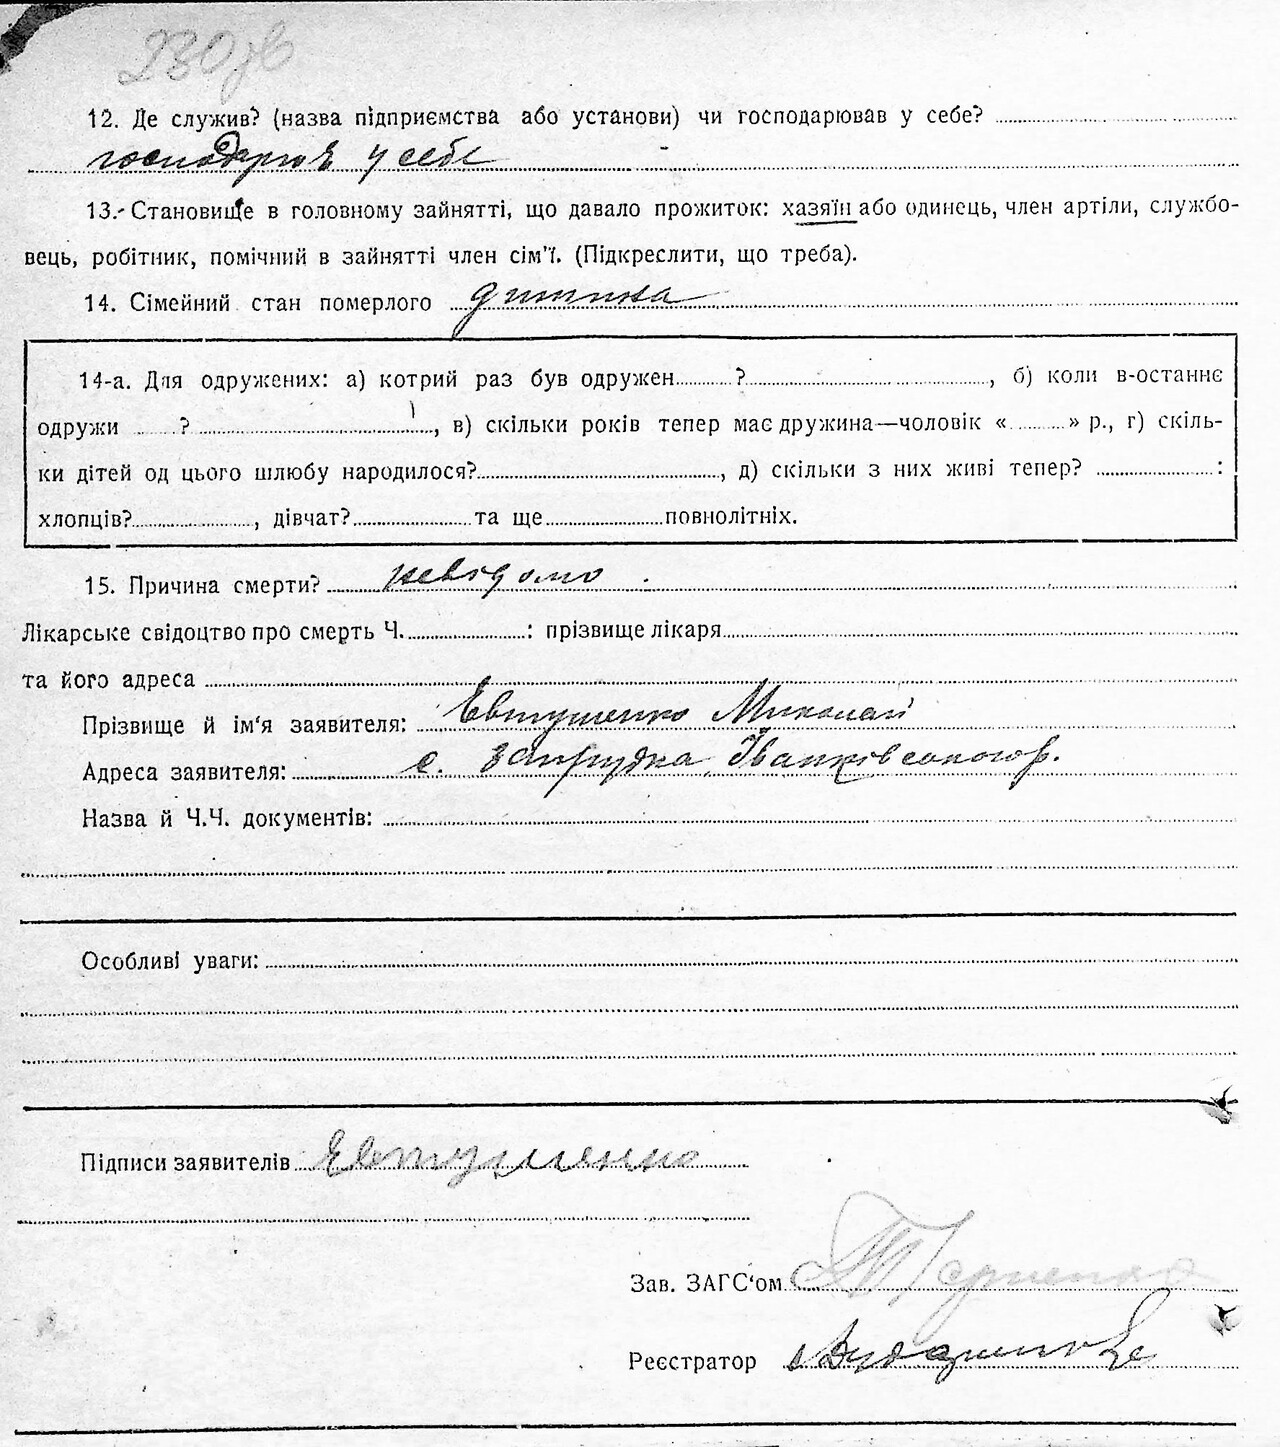 230зв
12. Де служив? (назва підприємства або установи) чи господарював у себе?
господарюв у себе
13. Становище в головному зайнятті, що давало прожиток: хазяїн або одинець, член артіли, службо-
вець, робітник, помічний в зайнятті член сім'ї. (Підкреслити, що треба).
14. Сімейний стан померлого дитина
14-а. Для одружених: а) котрий раз був одружен ? , б) коли в-останнє
одружи ? , в) скільки років тепер має дружина—чоловік « » р., г) скіль-
ки дітей од цього шлюбу народилося? , д) скільки з них живі тепер? :
хлопців? , дівчат? та ще повнолітніх.
15. Причина смерти? невідомо.
Лікарське свідоцтво про смерть Ч. : прізвище лікаря
та його адреса
Прізвище й ім'я заявителя: Євтушенко Миколай
Адреса заявителя: с. Запрудка Іванківського р.
Назва й Ч.Ч. документів:
Особливі уваги:
Підписи заявителів Євтушенко
Зав. ЗАГС'ом
Реєстратор